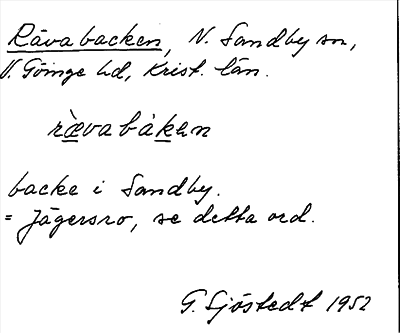 Rävabacken, N. Sandby sn,
V. Göinge hd, Krist. län.
ràevabák̲en
backe i Sandby.
= Jägersro, se detta ord.
G. Sjöstedt 1952